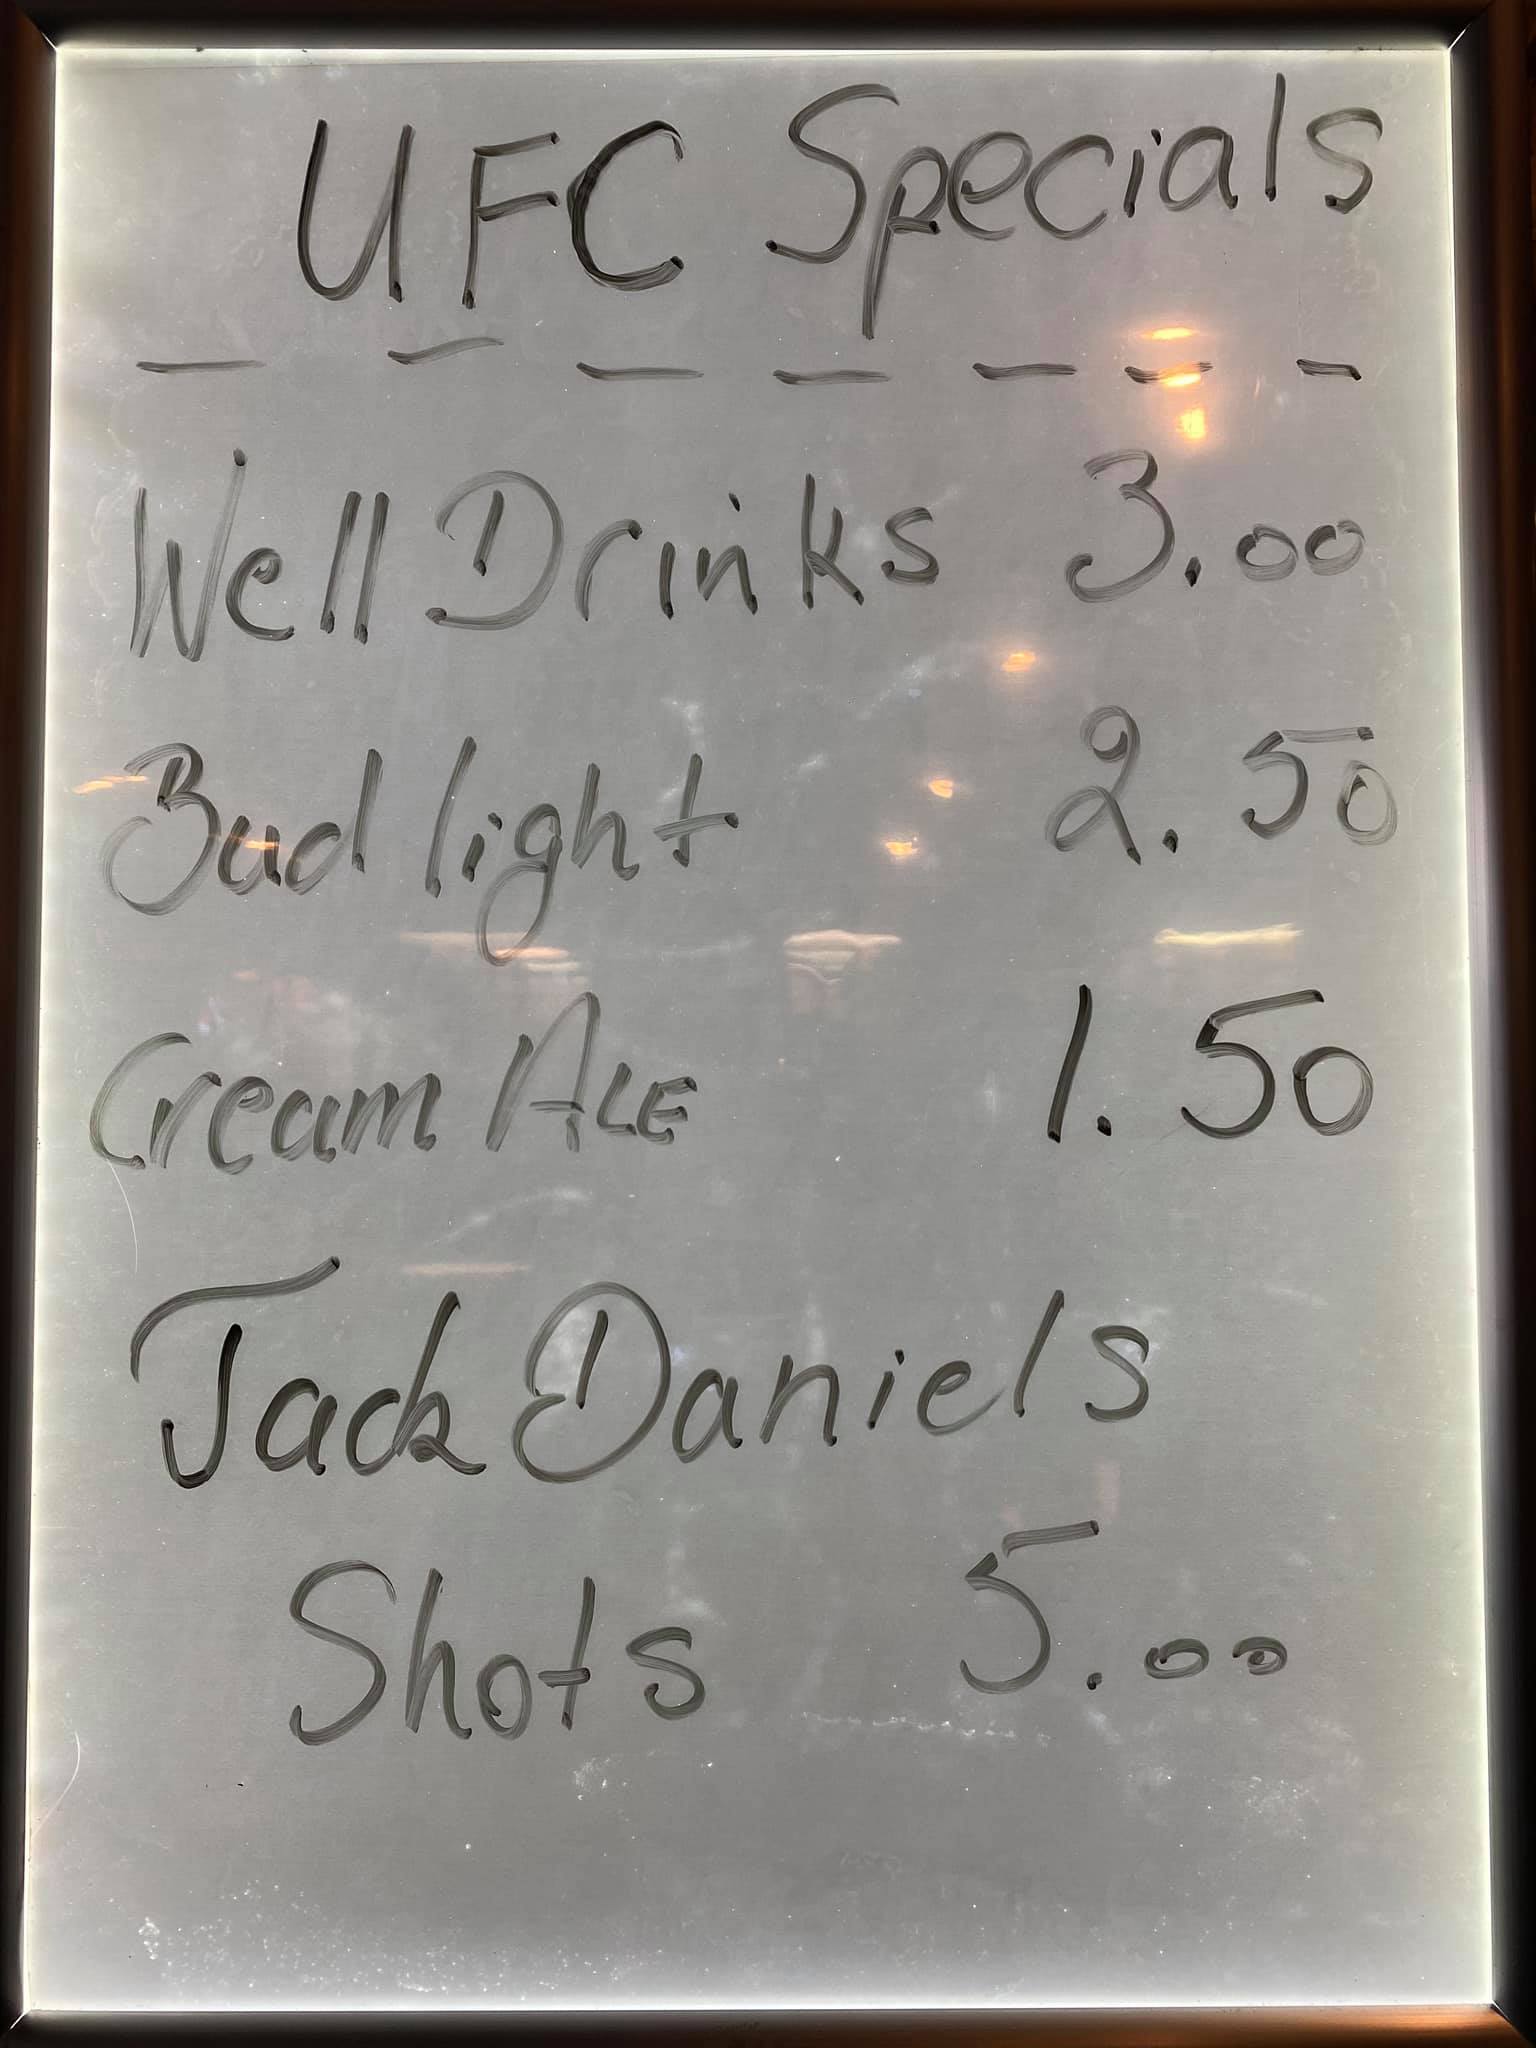 UFC Specials
— — — — — — -
Well Drinks 3.00
Bud light 2.50
Cream ALE 1.50
Jack Daniels
Shots 5.00